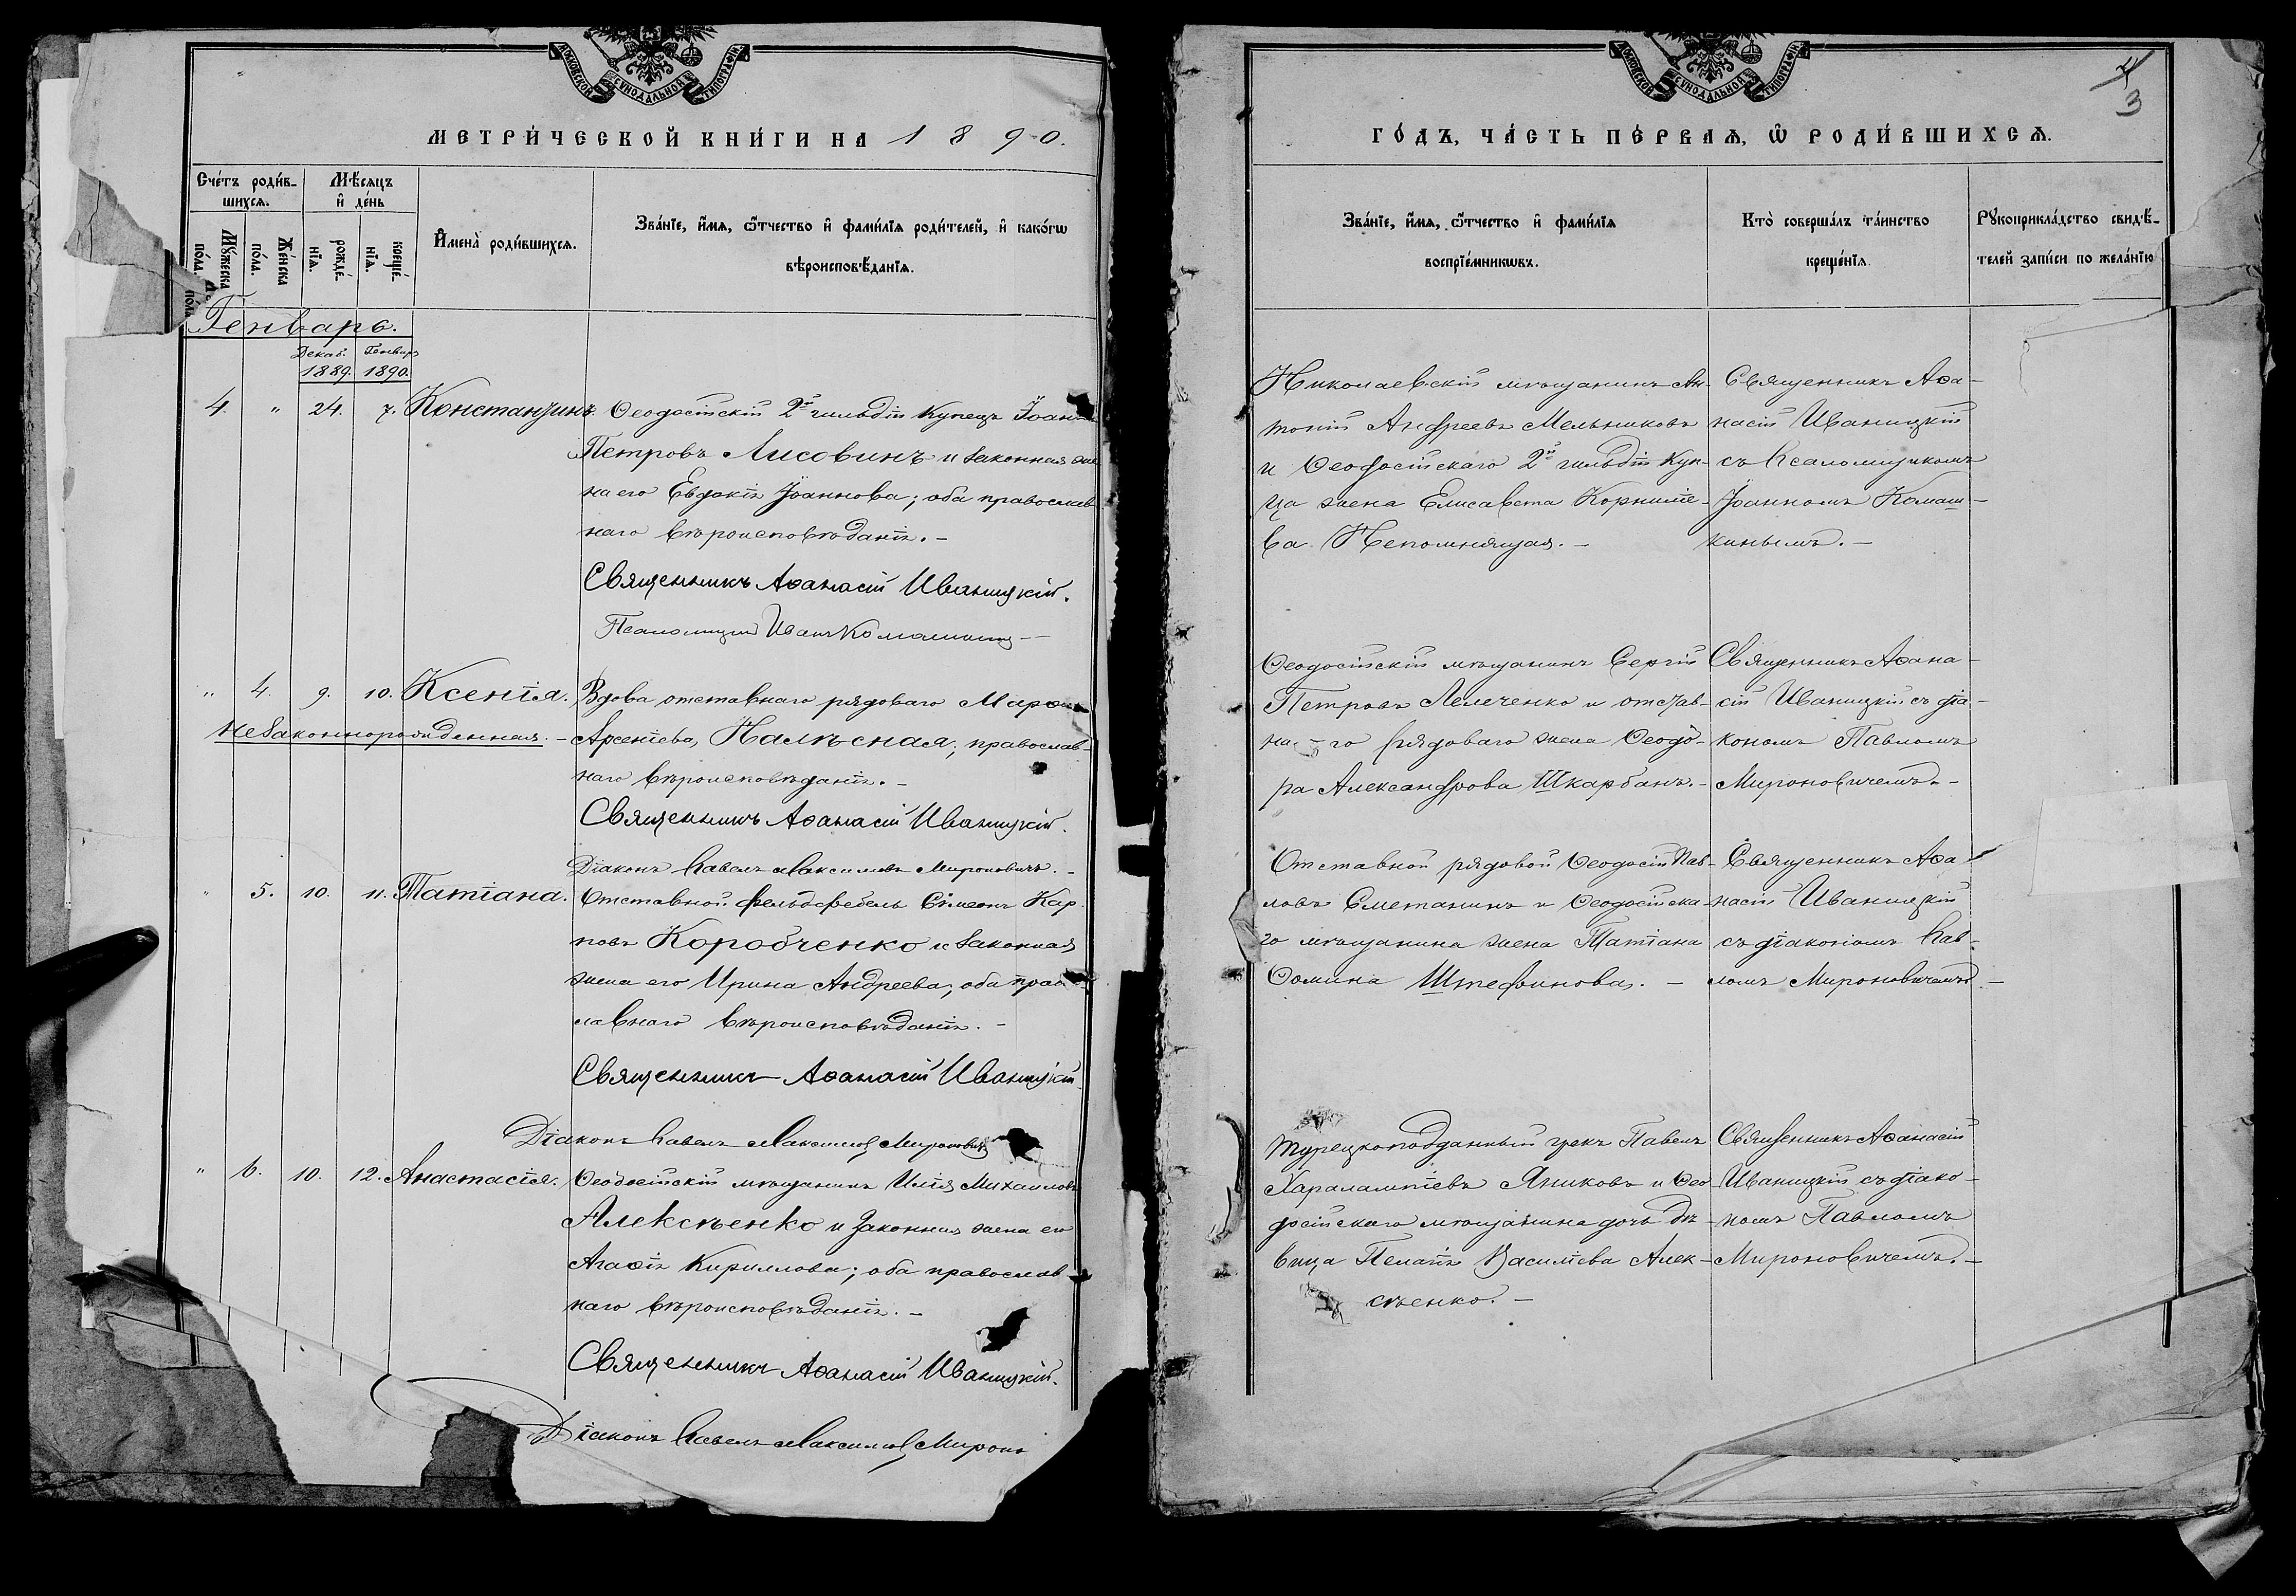 МОСКОВСКОЙ СѴНОДАЛЬНОЙ ТИПОГРАФІИ
МЕТРИ́ЧЕСКОЙ КНИ́ГИ НА 1890.
Сче́тъ роди́в-
шихсѧ.
Мѣ́сѧцъ
и҆ де́нь
Мꙋ́жеска
по́ла.
Же́нска
по́ла.
рожде́-
нїѧ.
креще́-
нїѧ.
И҆мена̀ роди́вшихсѧ.
Зва́нїе, и҆́мѧ, ѻ҆́тчество и҆ фами́лїѧ роди́телей, и҆ како́гѡ
вѣроисповѣ́данїѧ.
Генварь.
Декаб. Генварь
1889. 1890.
4. " 24. 7. Константинъ. Ѳеодосійскій 2й гильдіи купецъ Іоаннъ
Петровъ Лисовинъ и законная же
на его Евдокія Іоаннова; оба православ
наго вѣроисповѣданія. –
Священникъ Аѳанасій Иваницкій.
Псаломщикъ Иванъ Комашкинъ
" 4. 9. 10. Ксенія. Вдова отставнаго рядоваго Марѳа
Незаконнорожденная. – Арсеніева Налѣсная, православ-
наго вѣроисповѣданія. –
Священникъ Аѳанасій Иваницкій.
Діаконъ Павелъ Максимовъ Мироновичъ. –
" 5. 10. 11. Татіана. Отставной фельдфебель Симеонъ Кар
повъ Коробченко и законная
жена его Ирина Андреева; оба прав
лавнаго вѣроисповѣданія. –
Священникъ Аѳанасій Иваницкій
Діаконъ Павелъ Максимовъ Мироновичъ
" 6. 10. 12. Анастасія. Ѳеодосійскій мѣщанинъ Илія Михаиловъ
Алексѣенко и законная жена его
Агаѳія Кириллова; оба православ
наго вѣроисповѣданія. –
Священникъ Аѳанасій Иваницкій.
Діаконъ Павелъ Максимовъ Мироно
МОСКОВСКОЙ СѴНОДАЛЬНОЙ ТИПОГРАФІИ
3
ГО́ДЪ, ЧА́СТЬ ПЕ́РВАѦ, Ѡ҆ РОДИ́ВШИХСѦ.
Зва́нїе, и҆́мѧ, ѻ҆́тчество и҆ фами́лїѧ
воспрїе́мникѡвъ.
Кто̀ соверша́лъ та́инство
креще́нїѧ.
Рꙋкоприкла́дство свидѣ́-
телей за́писи по жела́нїю
Николаевскій мѣщанинъ Ан-
тоній Андреевъ Мельниковъ
и Ѳеодосійскаго 2й гильдіи куп-
ца жена Елисавета Корниліе-
ва Непомнящая. –
Священникъ Аѳа-
насій Иваницкій
съ псаломщикомъ
Іоанномъ Комаш-
кинымъ. –
Ѳеодосійскій мѣщанинъ Сергій
Петровъ Лелеченко и отстав-
на-го рядоваго жена Ѳеодо-
ра Александрова Шкарбанъ. –
Священникъ Аѳана-
сій Иваницкій съ діа-
кономъ Павломъ
Мироновичемъ. –
Отставной рядовой Ѳеодосій Пав-
ловъ Сметанинъ и Ѳеодосійска-
го мѣщанина жена Татіана
Ѳомина Штефинова. –
Священникъ Аѳа-
насій Иваницкій
съ діакономъ Пав-
ломъ Мироновичемъ. –
Турецкоподданный грекъ Павелъ
Харалампіевъ Яниковъ и Ѳео
досійскаго мѣщанина дочь дѣ-
вица Пелагія Василіева Алек-
сѣенко. –
Священникъ Аѳанасій
Иваницкій съ діако-
номъ Павломъ
Мироновичемъ. –